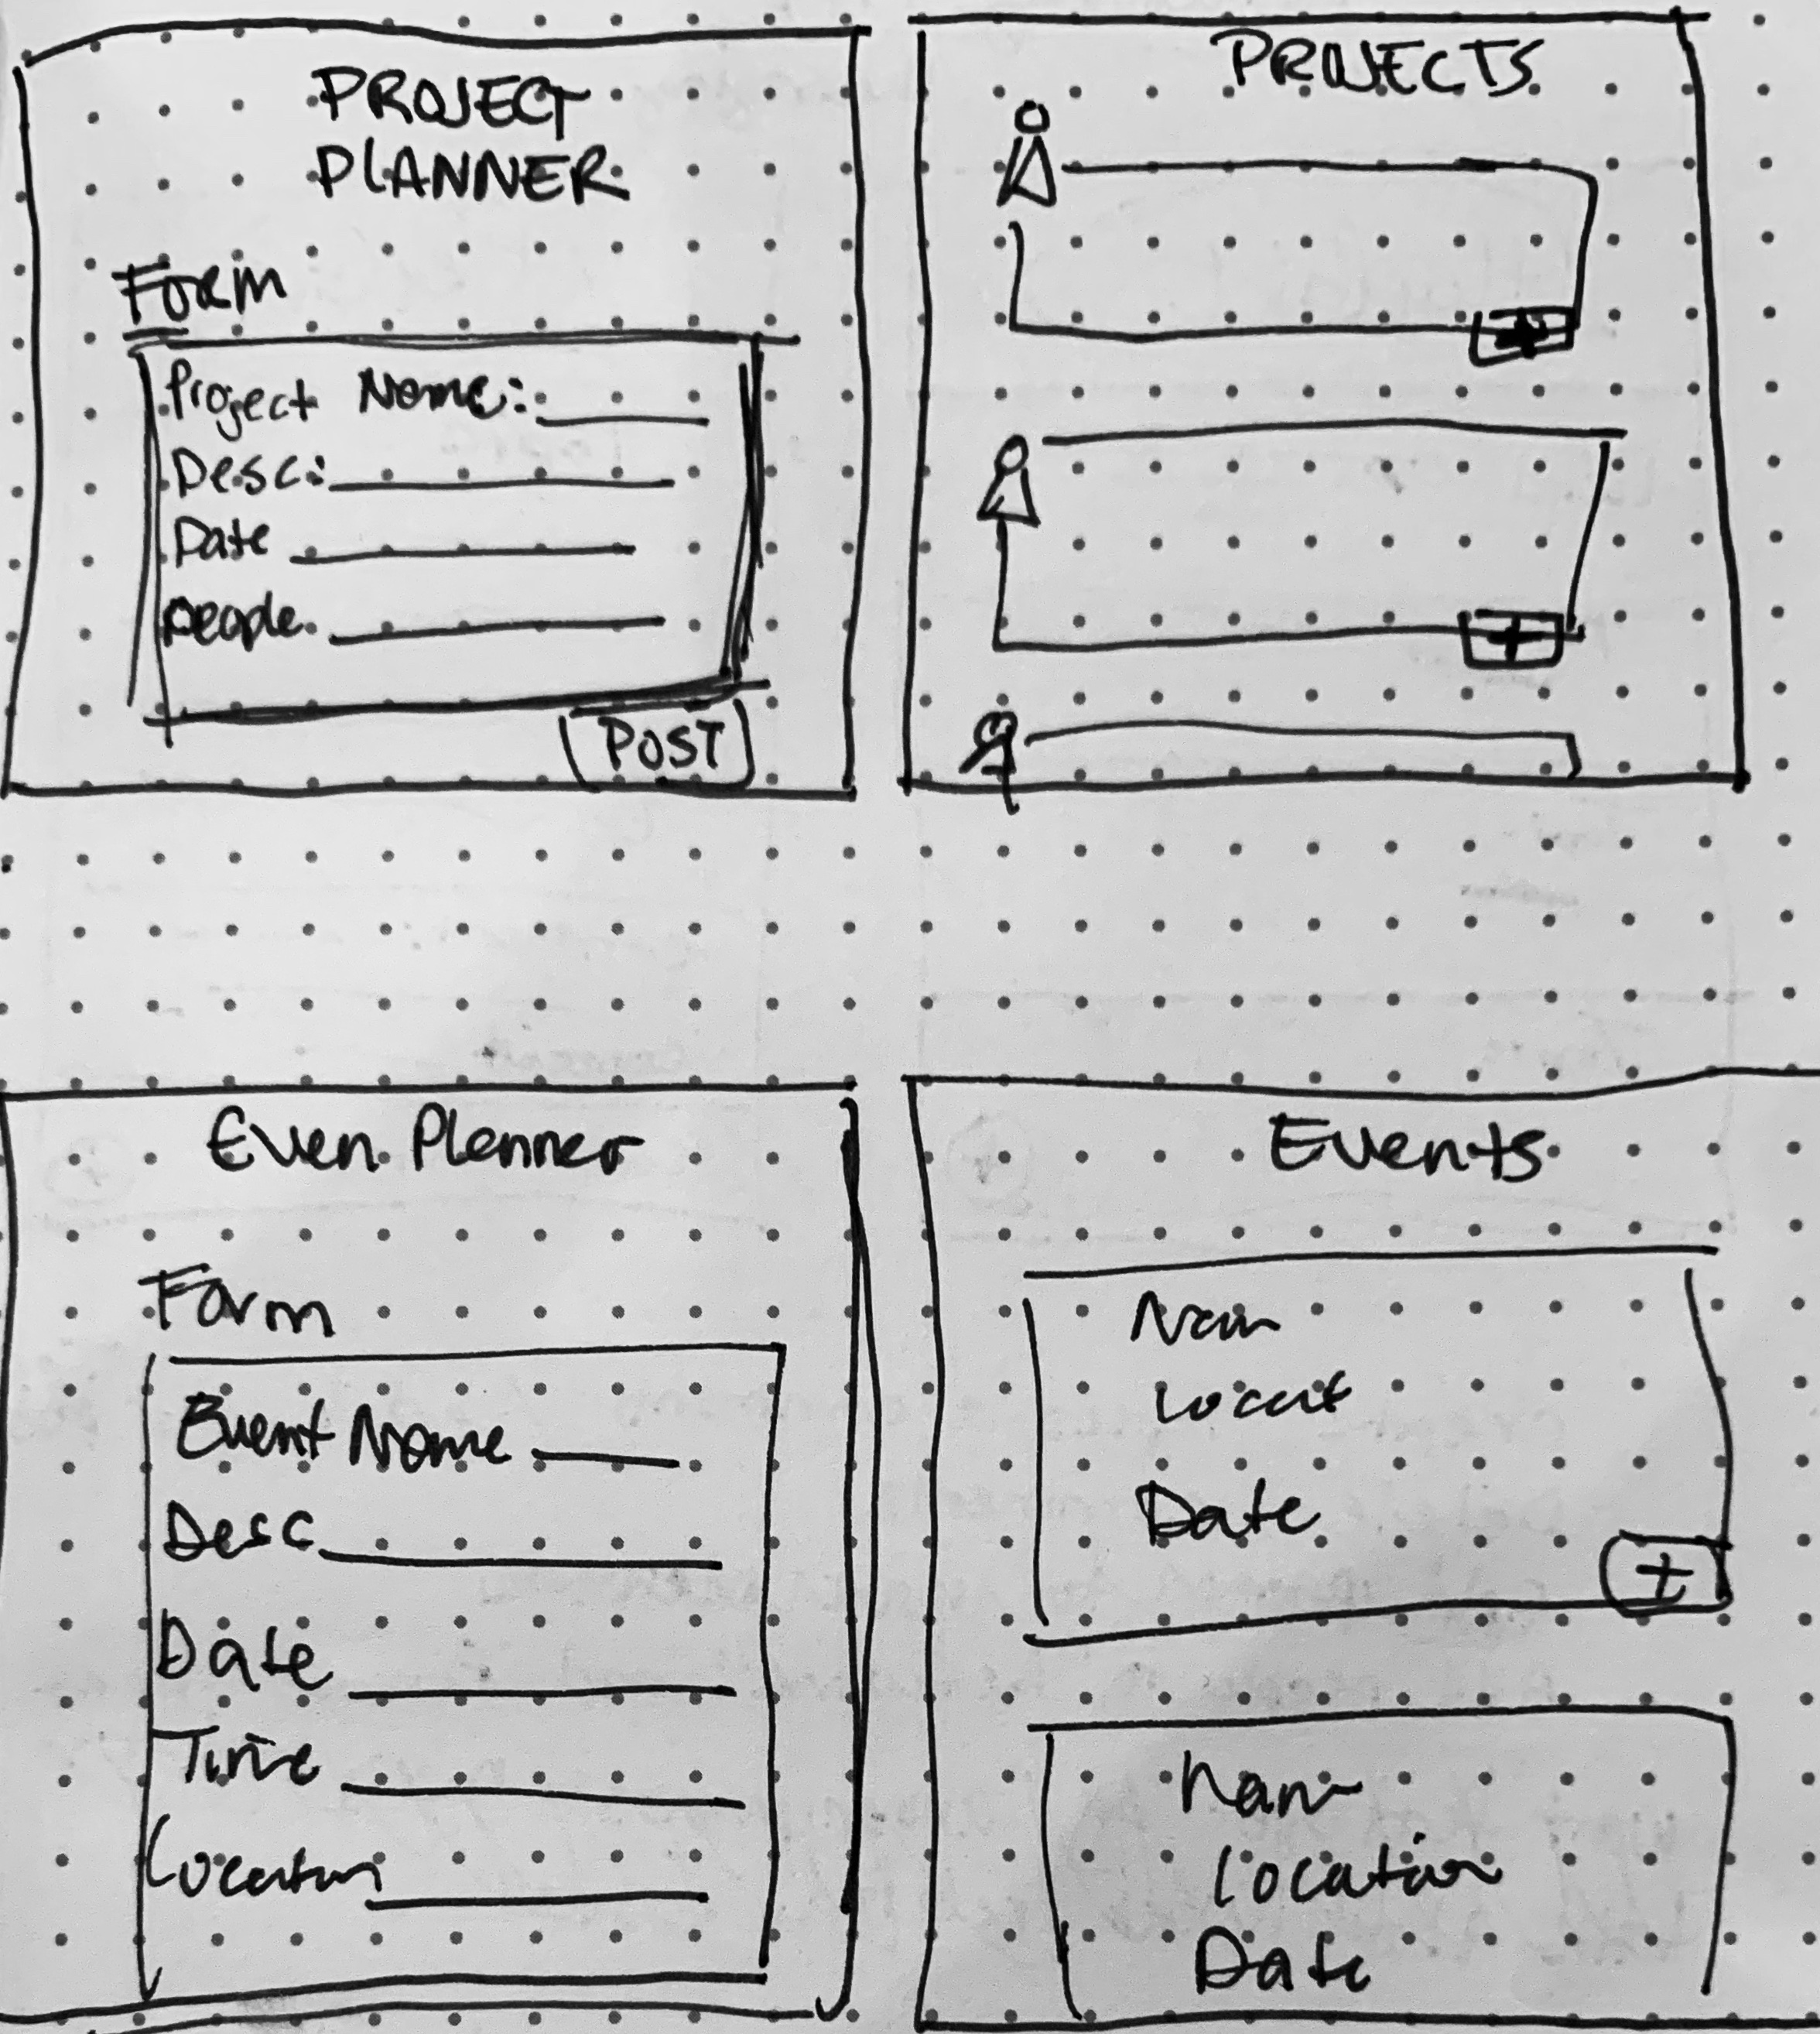 PROJECT
PLANNER
Form
Project Name:
Desc:
Date
People
POST
PROJECTS
+
+
Even Planner
Form
Event Name
Desc
Date
Time
Location
Events
Nam
Locat
Date
+
Nam
Location
Date